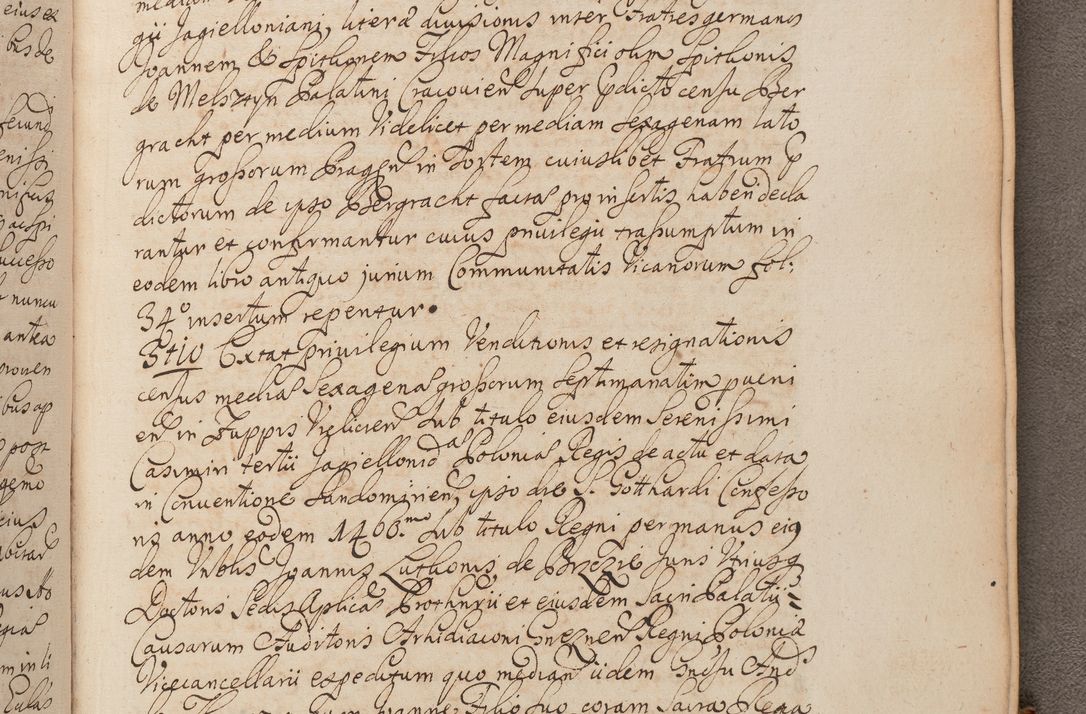 gii Jagielloniani, literæ divisionis inter Fratres germanos
Joannem & Spithonem Filios Magnifici olim Spithonis
de Melsztyn Palatini Cracovien super Pdicto censu Ber
gracht per medium Videlicet per mediam sexagenam lato
rum grossorum Pragen in sortem cuiuslibet Fratrum P
dictorum de ipso Bergracht factas pro insertis haben decla
rantur et confirmantur cuius privilegii trasumptum in
eodem libro antiquo jurium Communitatis Vicanorum fol:
34o insertum repentur.
3tio Extat privilegium Venditionis et resignationis
census mediæ Sexagenæ grossorum septimanatim pveni
en in Zuppis Vielicien sub titulo eiusdem Serenissimi
Casimiri tertii Jagiellonid as Poloniæ Regis de actu et data
in Conventione Sandomirien, ipso die S. Gotthardi Confesso
ris anno eodem 1466.mo sub titulo Regni per manus eiq
dem Nrblis Joannis Luthonis de Brzezie Juris Utriusq
Doctoris Sedis Aplicæ Prothnrii et eiusdem Sacri Palatii
Causarum Auditoris Archidiaconi Gneznen Regni Poloniæ
Vicecancellarii expeditum quo median iidem
Joanne Filio suo coram Sacra Regia
eius ex
bus de
fecund
nunca
antea
proven
ibus ap
post
gemo
eius
m in li